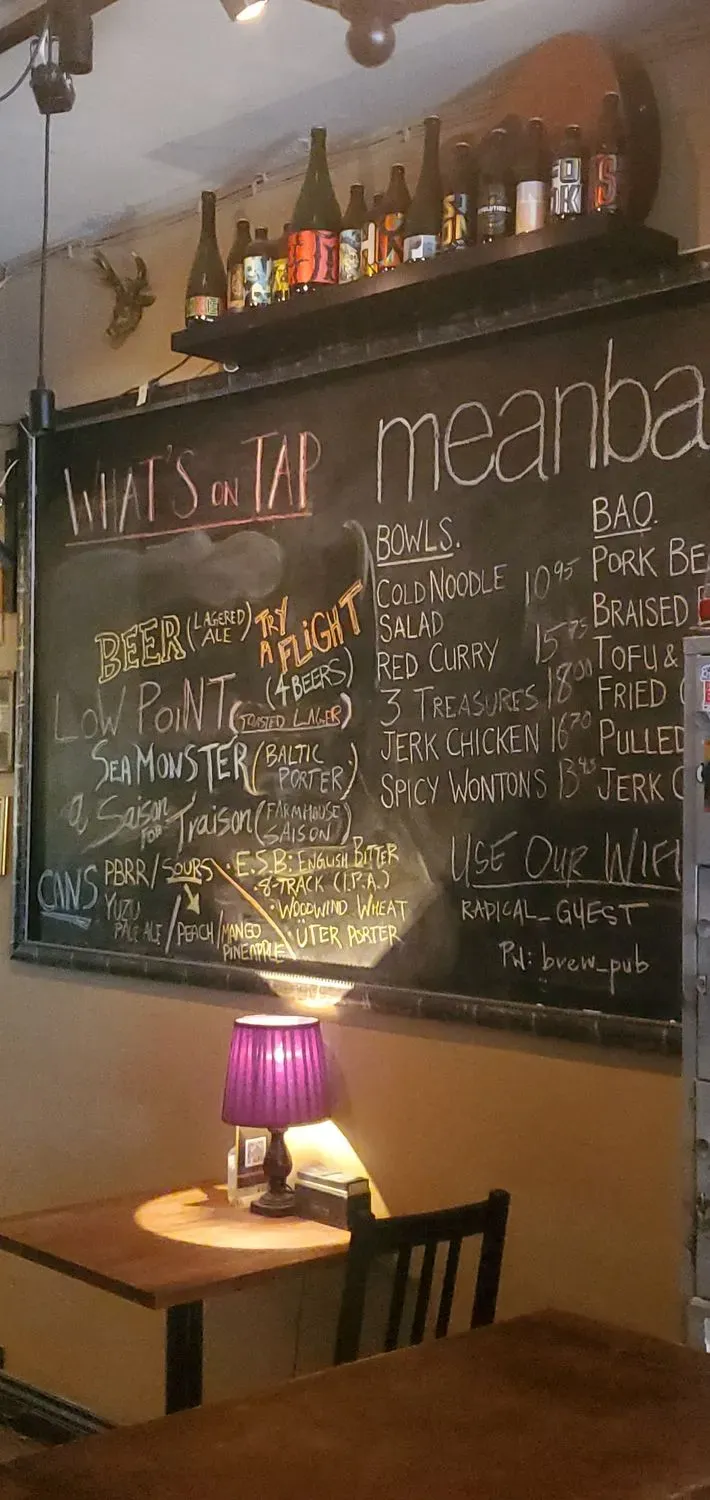 WHAT'S ON TAP
BEER (LAGERED ALE)
TRY A FLIGHT
(4 BEERS)
LOW POINT (TOASTED LAGER)
SEA MONSTER (BALTIC PORTER)
a Saison FOR Traison (FARMHOUSE SAISON)
CANS
PBRR / SOURS
YUZU PALE ALE / PEACH / MANGO PINEAPPLE
• E.S.B: ENGLISH BITTER
• 8-TRACK (I.P.A.)
• WOODWIND WHEAT
• ÜTER PORTER
meanba
BOWLS.
COLD NOODLE SALAD 10.95
RED CURRY 15.75
3 TREASURES 18.00
JERK CHICKEN 16.70
SPICY WONTONS 13.95
BAO.
PORK BE
BRAISED
TOFU &
FRIED
PULLED
JERK C
USE OUR WIFI
RADICAL_GUEST
PW: brew_pub